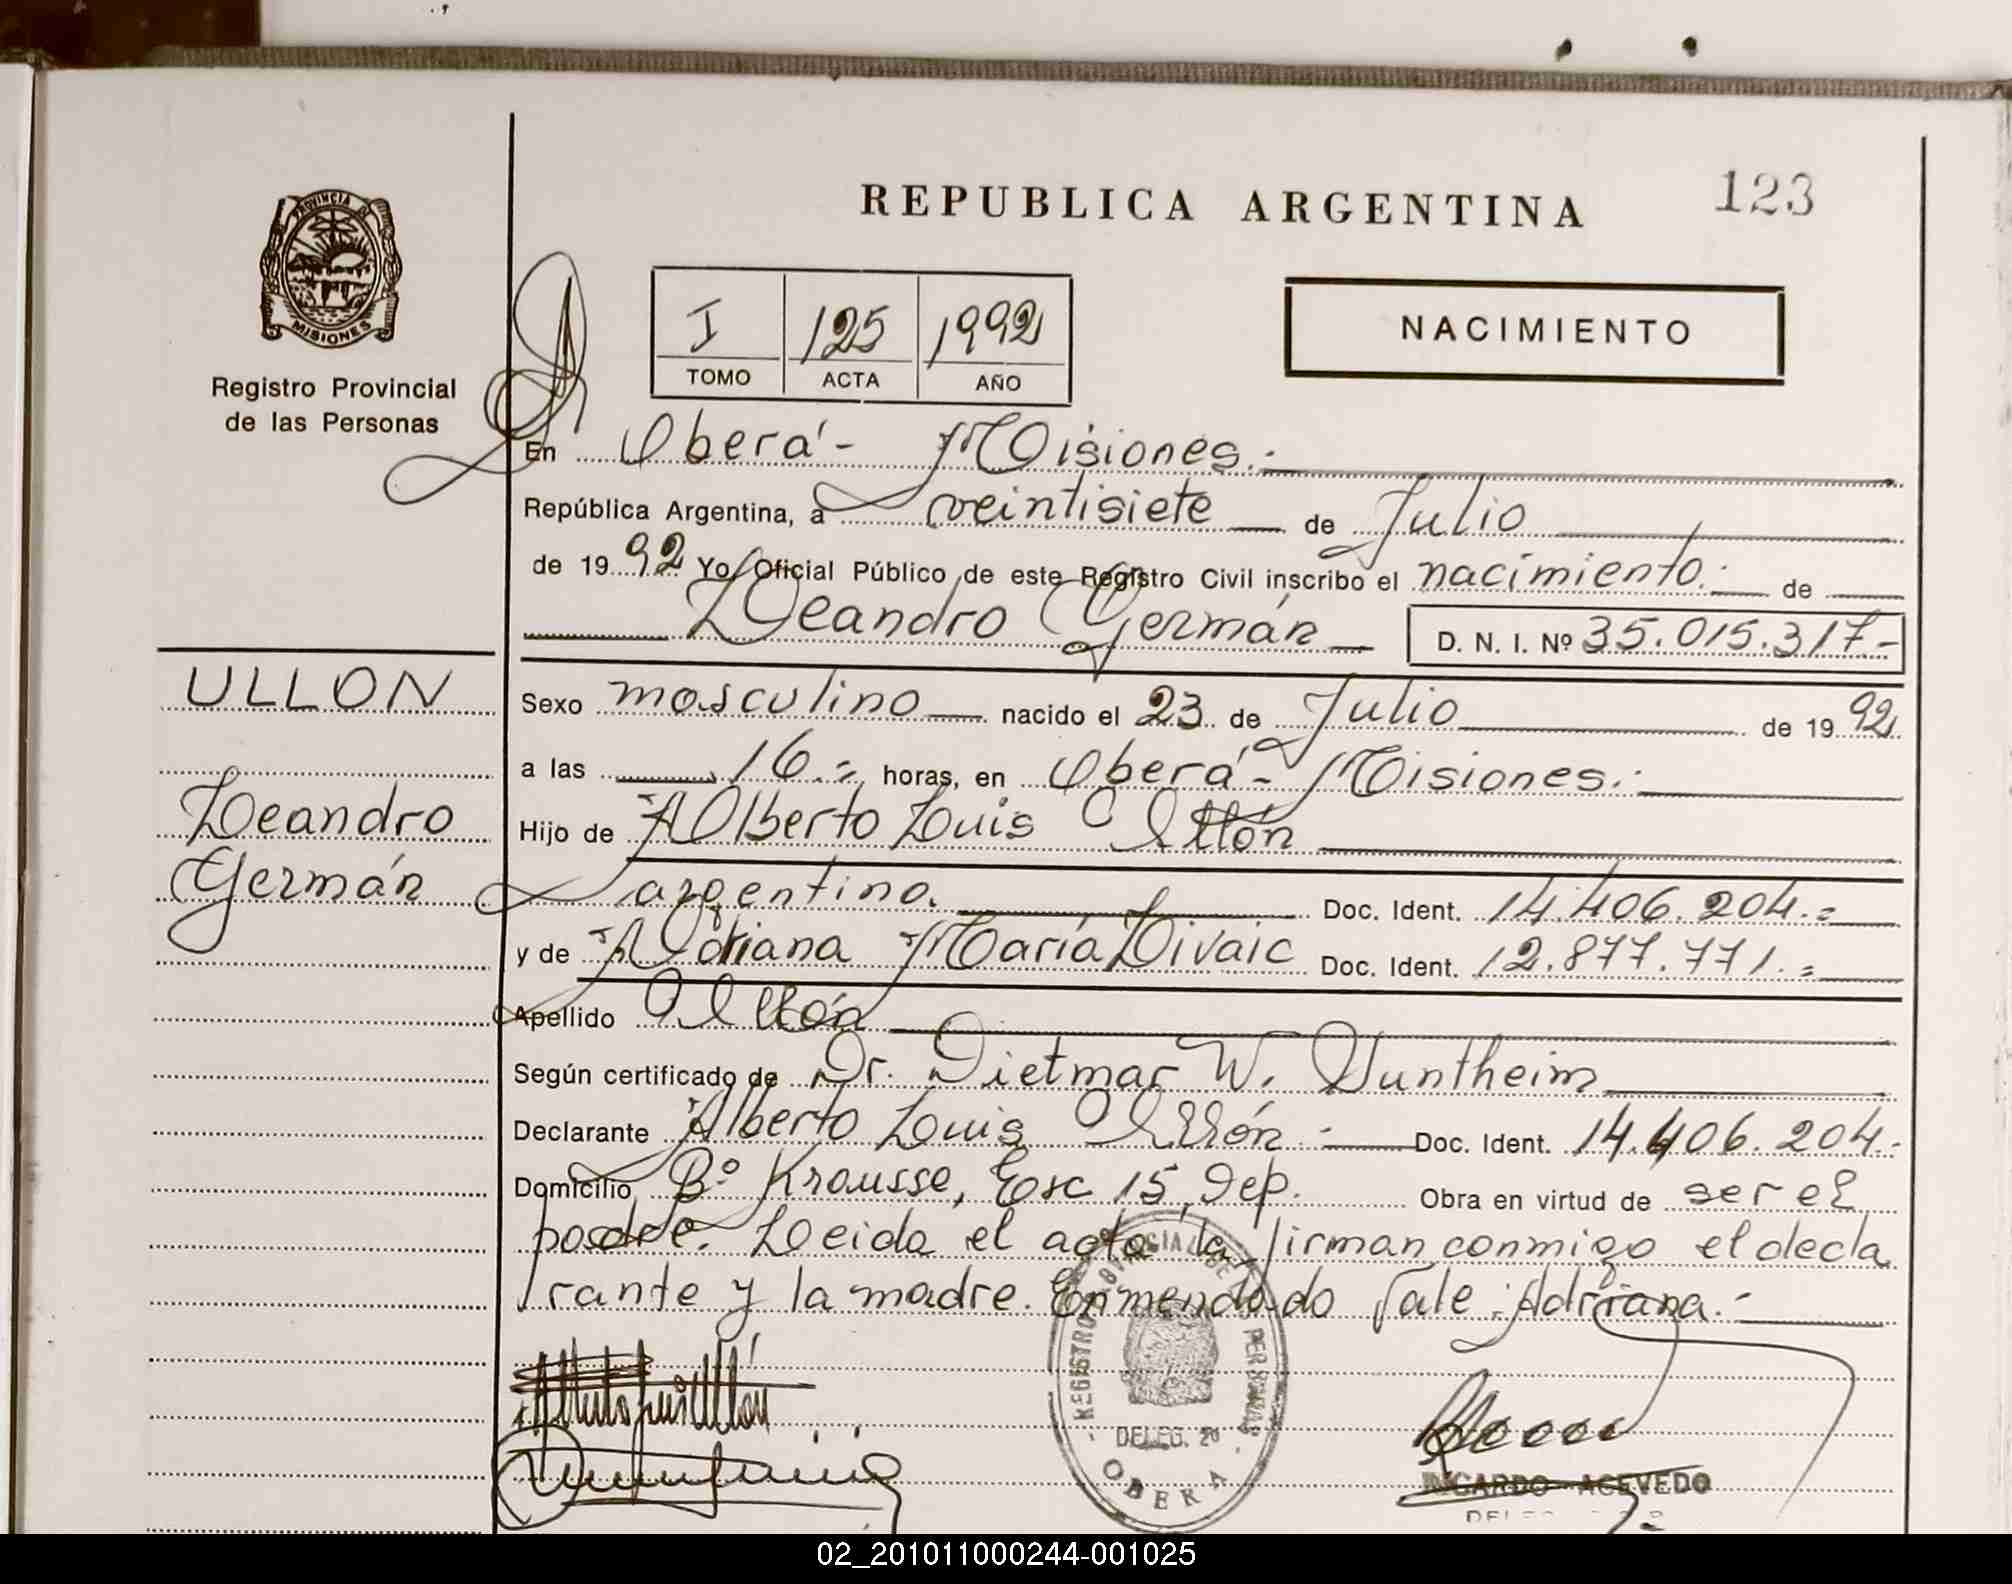 REPUBLICA ARGENTINA
123
PROVINCIA DE
MISIONES
Registro Provincial
de las Personas
I 125 1992
TOMO ACTA AÑO
NACIMIENTO
En Oberá - Misiones.-
República Argentina, a veintisiete de Julio
de 1992 Yo Oficial Público de este Registro Civil inscribo el nacimiento.- de
Leandro Germán D. N. I. Nº 35.015.317.-
ULLON
Leandro
Germán
Sexo masculino nacido el 23 de Julio de 1992
a las 16.- horas, en Oberá - Misiones.-
Hijo de Alberto Luis Ullón
argentino. Doc. Ident. 14.406.204.=
y de Adriana María Livaic Doc. Ident. 12.877.771.=
Apellido Ullón
Según certificado de Dr. Dietmar W. Guntheim
Declarante Alberto Luis Ullón.- Doc. Ident. 14.406.204.-
Domicilio Bº Krausse, Esc 15 Dep. Obra en virtud de ser el
padre. Leida el acta la firman conmigo el decla
rante y la madre. Enmendado Vale: Adriana.-
REGISTRO PROVINCIAL DE LAS PERSONAS
DELEG. 20
OBERA
RICARDO ACEVEDO
02_201011000244-001025